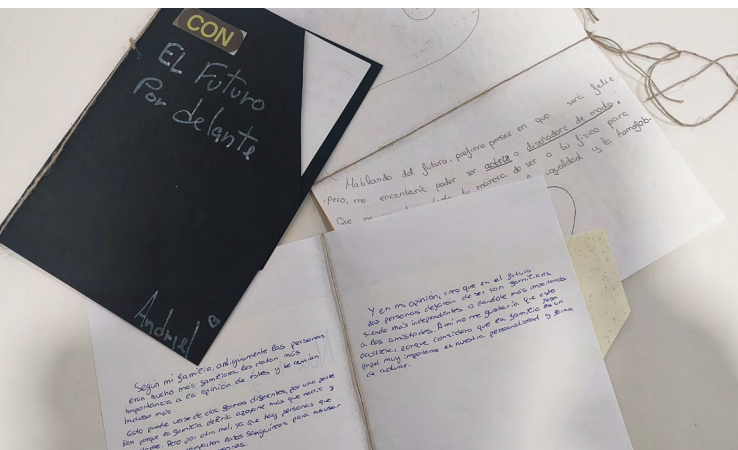 CON
EL Futuro
Por delante
Andriel
Hablando del futuro, prefiero pensar en que será feliz
pero, me encantaría poder ser actriz o diseñadora de moda,
Que tu manera de ser o tu físico para
igualdad y la homofob-
Según mi familia, antiguamente las personas
eran mucho más familiares, les daban más
importancia a la opinión de éstos y se reunían
incluso más
Esto puede verse de dos formas diferentes, por una parte
bien porque la familia debería apoyarte más que nadie y
Pero por otra mal, ya que hay personas que
lazos sanguíneos para abusar
Y en mi opinión, creo que en el futuro
las personas dejarán de ser tan familiares
siendo más independientes o dándole más importancia
a las amistades. A mí no me gustaría que esto pase
ocurriese, porque considero que la familia es un
papel muy importante en nuestra personalidad y forma
de actuar.